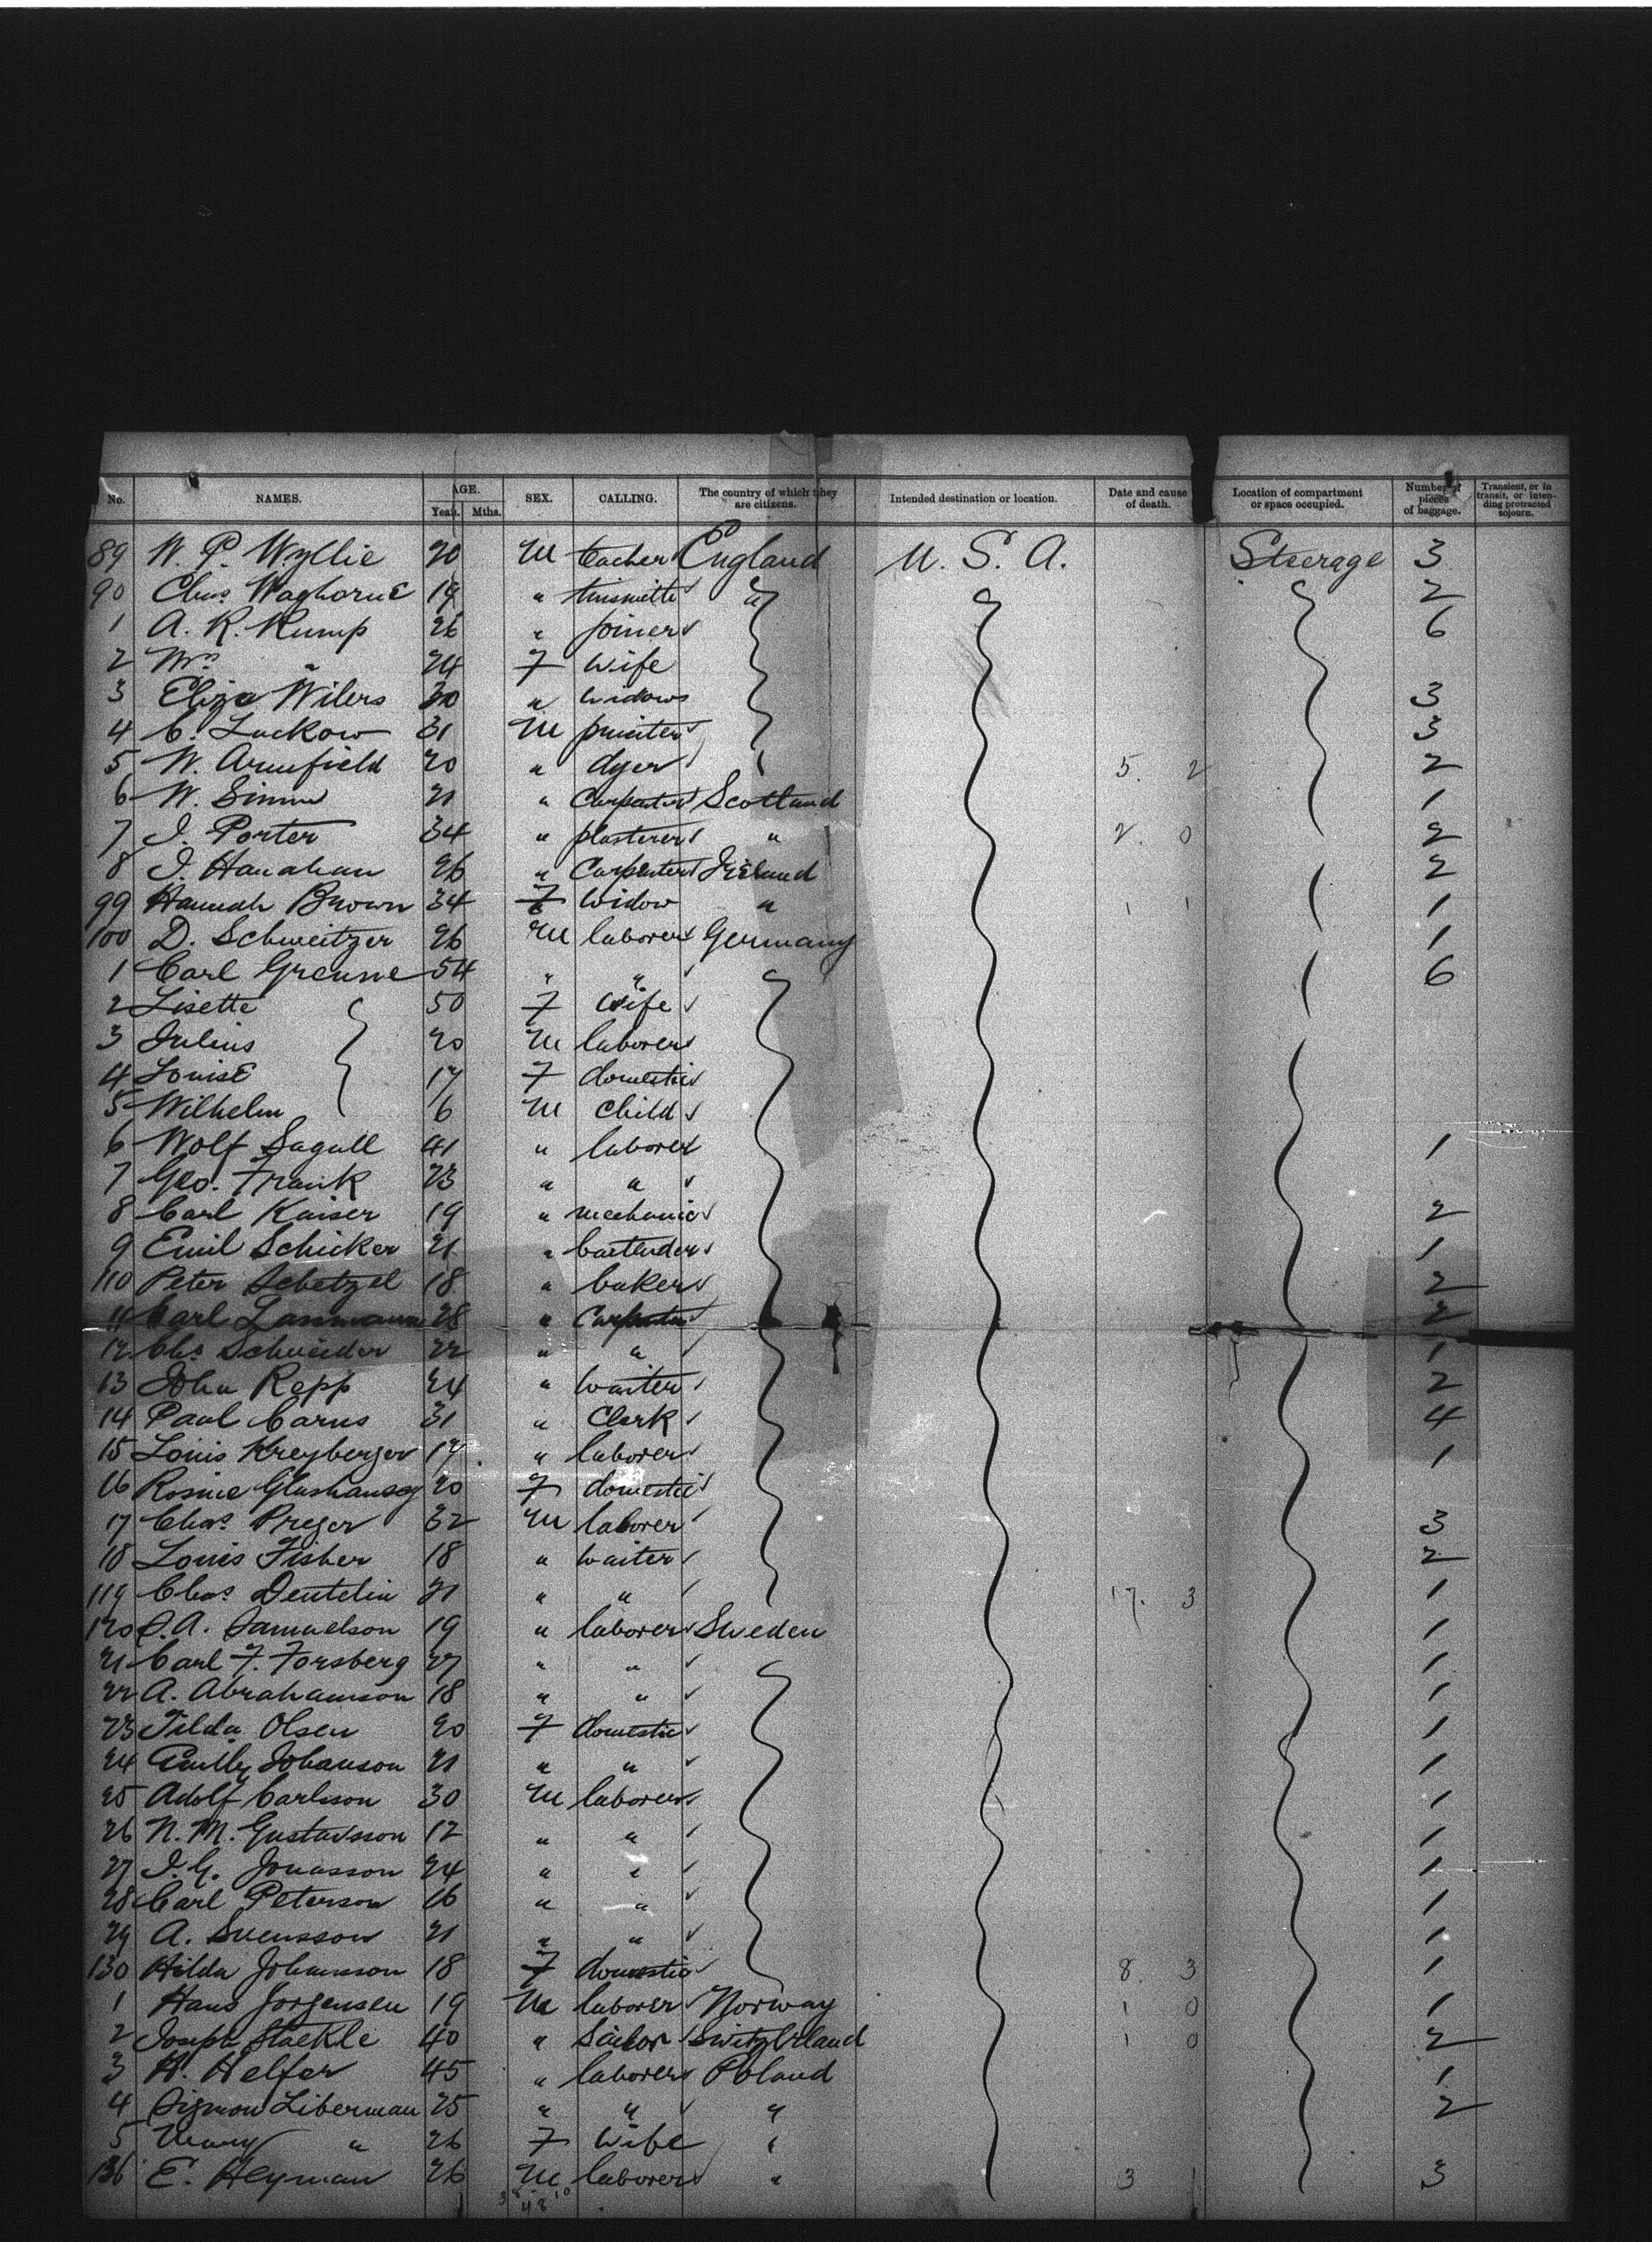 No. NAMES. AGE. Years. Mths. SEX. CALLING. The country of which they are citizens. Intended destination or location. Date and cause of death. Location of compartment or space occupied. Number of pieces of baggage. Transient, or in transit, or intending protracted sojourn.
89 W. P. Wyllie 20 M teacher England U. S. A. Steerage 3
90 Chas. Waghorne 19 " tinsmith " 2
1 A. R. Kump 26 " joiner 6
2 Mrs " 24 F wife
3 Eliza Wilers 30 " widow 3
4 C. Luckow 31 M printer 3
5 W. Armfield 20 " dyer 5. 2 2
6 W. Simm 21 " Carpenter Scotland 1
7 J. Porter 34 " plasterer " 2. 0 2
8 J. Hanahan 26 " Carpenter Ireland 2
99 Hannah Brown 34 F Widow " 1 1 1
100 D. Schweitzer 26 M laborer Germany 1
1 Carl Greune 54 " " 6
2 Lisette 50 F Wife
3 Julius 20 M laborer
4 Louise 17 F domestic
5 Wilhelm 6 M Child
6 Wolf Sagall 41 " laborer 1
7 Geo. Frank 23 " "
8 Carl Kaiser 19 " mechanic 2
9 Emil Schicker 21 " bartender 1
110 Peter Schetzel 18 " baker 2
11 Carl Lassmann 28 " Carpenter 2
12 Chs. Schneider 22 " " 1
13 John Repp 24 " waiter 2
14 Paul Carus 31 " Clerk 4
15 Louis Kreyberger 17 " laborer 1
16 Rosine 20 F domestic
17 Chas. Preger 32 M laborer 3
18 Louis Fisher 18 " waiter 2
119 Chas. Deutelin 21 " " 17. 3 1
120 S. A. Samuelson 19 " laborer Sweden 1
21 Carl F. Forsberg 27 " " 1
22 A. Abrahamson 18 " " 1
23 Tilda Olsen 20 F domestic 1
24 Emilly Johanson 21 " " 1
25 Adolf Carlsson 30 M laborer 1
26 N. M. Gustavsson 12 " " 1
27 J. G. Jonasson 24 " " 1
28 Carl Peterson 16 " " 1
29 A. Svensson 21 " " 1
130 Hilda Johansson 18 F domestic 8. 3 1
1 Hans Jorgensen 19 M laborer Norway 1 0 1
2 Joseph Staekle 40 " Sailor Switzerland 1 0 2
3 H. Helfer 45 " laborer Poland 1
4 Sigmon Liberman 25 " " " 2
5 " 26 F Wife "
136 E. Heyman 26 M laborer " 3 1 3
48